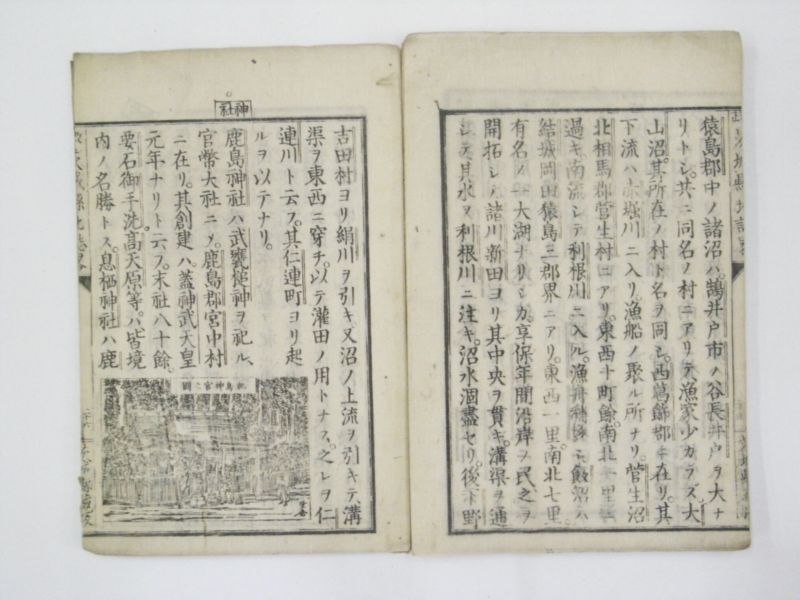 猿島郡中ノ諸沼ハ鵠井戸市ノ谷長井戸ヲ大ナ
リトシ。共ニ同名ノ村ニアリテ漁家少カラズ。大
山沼。其所在ノ村ト名ヲ同シ。西葛飾郡ニ在リ。其
下流ハ赤堀川ニ入リ漁船ノ聚ル所ナリ。菅生沼
北相馬郡菅生村ニアリ。東西十町餘。南北一里ニ
過キ南流シテ利根川ニ入ル。漁舟 飯沼ハ
結城岡田猿島三郡界ニアリ。東西一里。南北七里。
有名ノ一大湖ナリシカ。享保年間沿岸ヲ民之ヲ
開拓シ。諸川新田ヨリ其中央ヲ貫キ。溝渠ヲ通
シテ其水ヲ利根川ニ注キ。沼水涸盡セリ。後下野
神社
吉田村ヨリ絹川ヲ引キ又沼ノ上流ヲ引キテ、溝
渠ヲ東西ニ穿チ。以テ灌田ノ用トナス。之レヲ仁
連川ト云フ。其仁連町ヨリ起
ルヲ以テナリ。
鹿島神社ハ武甕槌神ヲ祀ル、
官幣大社ニメ。鹿島郡宮中村
ニ在リ。其創建ハ蓋神武天皇
元年ナリト云フ。末社八十餘。
要石御手洗高天原等。ハ皆境
内ノ名勝トス。息栖神社ハ鹿
鹿島神宮之圖